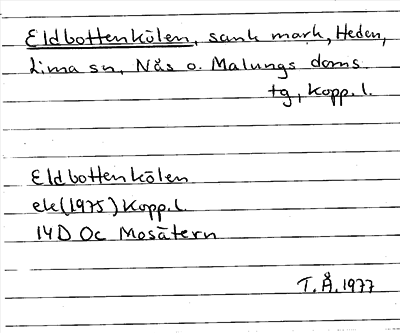 Eldbottenkölen, sank mark, Heden,
Lima sn, Nås o. Malungs doms.
tg, Kopp. l.
Eldbottenkölen
ek (1975) Kopp. l.
14D Oc Mosätern
T. Å. 1977